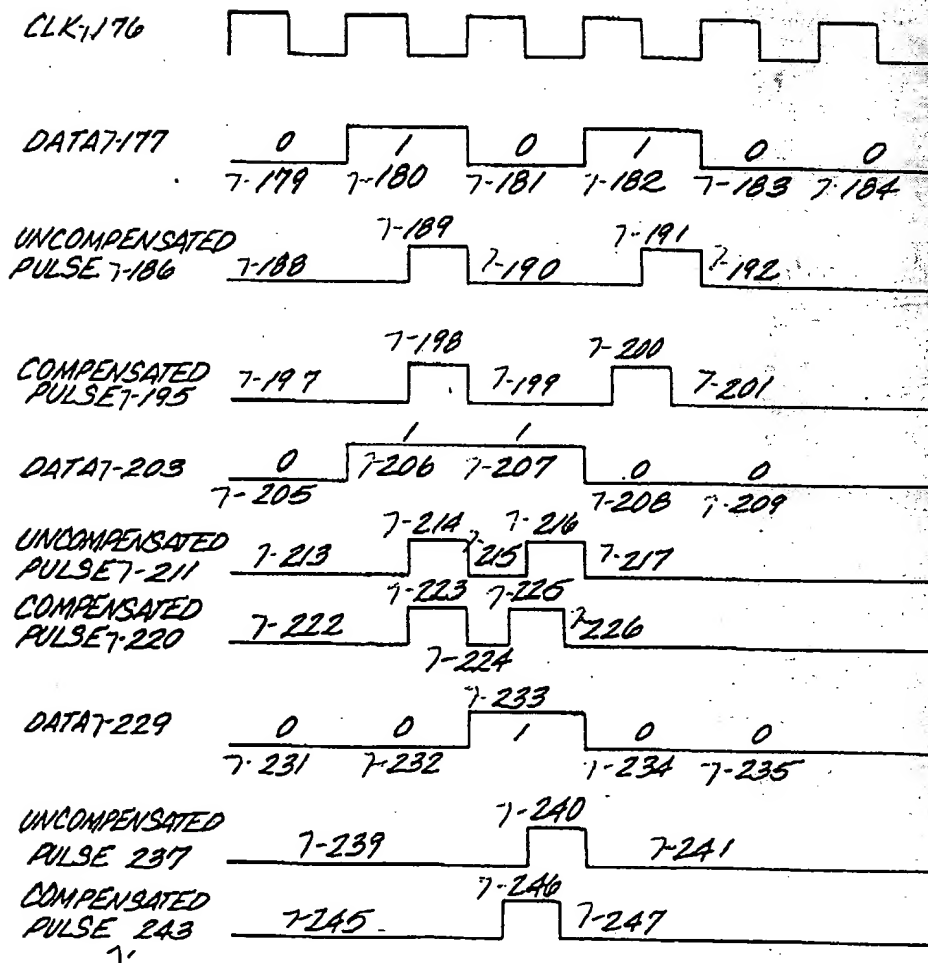 CLK7-176
DATA7-177
0 1 0 1 0 0
7-179 7-180 7-181 7-182 7-183 7-184
7-189 7-191
UNCOMPENSATED
PULSE 7-186
7-188 7-190 7-192
7-198 7-200
COMPENSATED
PULSE7-195
7-197 7-199 7-201
1 1
DATA7-203
0 7-206 7-207 0 0
7-205 7-208 7-209
7-214 7-216
UNCOMPENSATED
PULSE7-211
7-213 7-215 7-217
7-223 7-225
COMPENSATED
PULSE7-220
7-222 7-226
7-224
7-233
DATA7-229
0 0 1 0 0
7-231 7-232 7-234 7-235
7-240
UNCOMPENSATED
PULSE 237
7-239 7-241
7-246
COMPENSATED
PULSE 243
7-245 7-247
7-